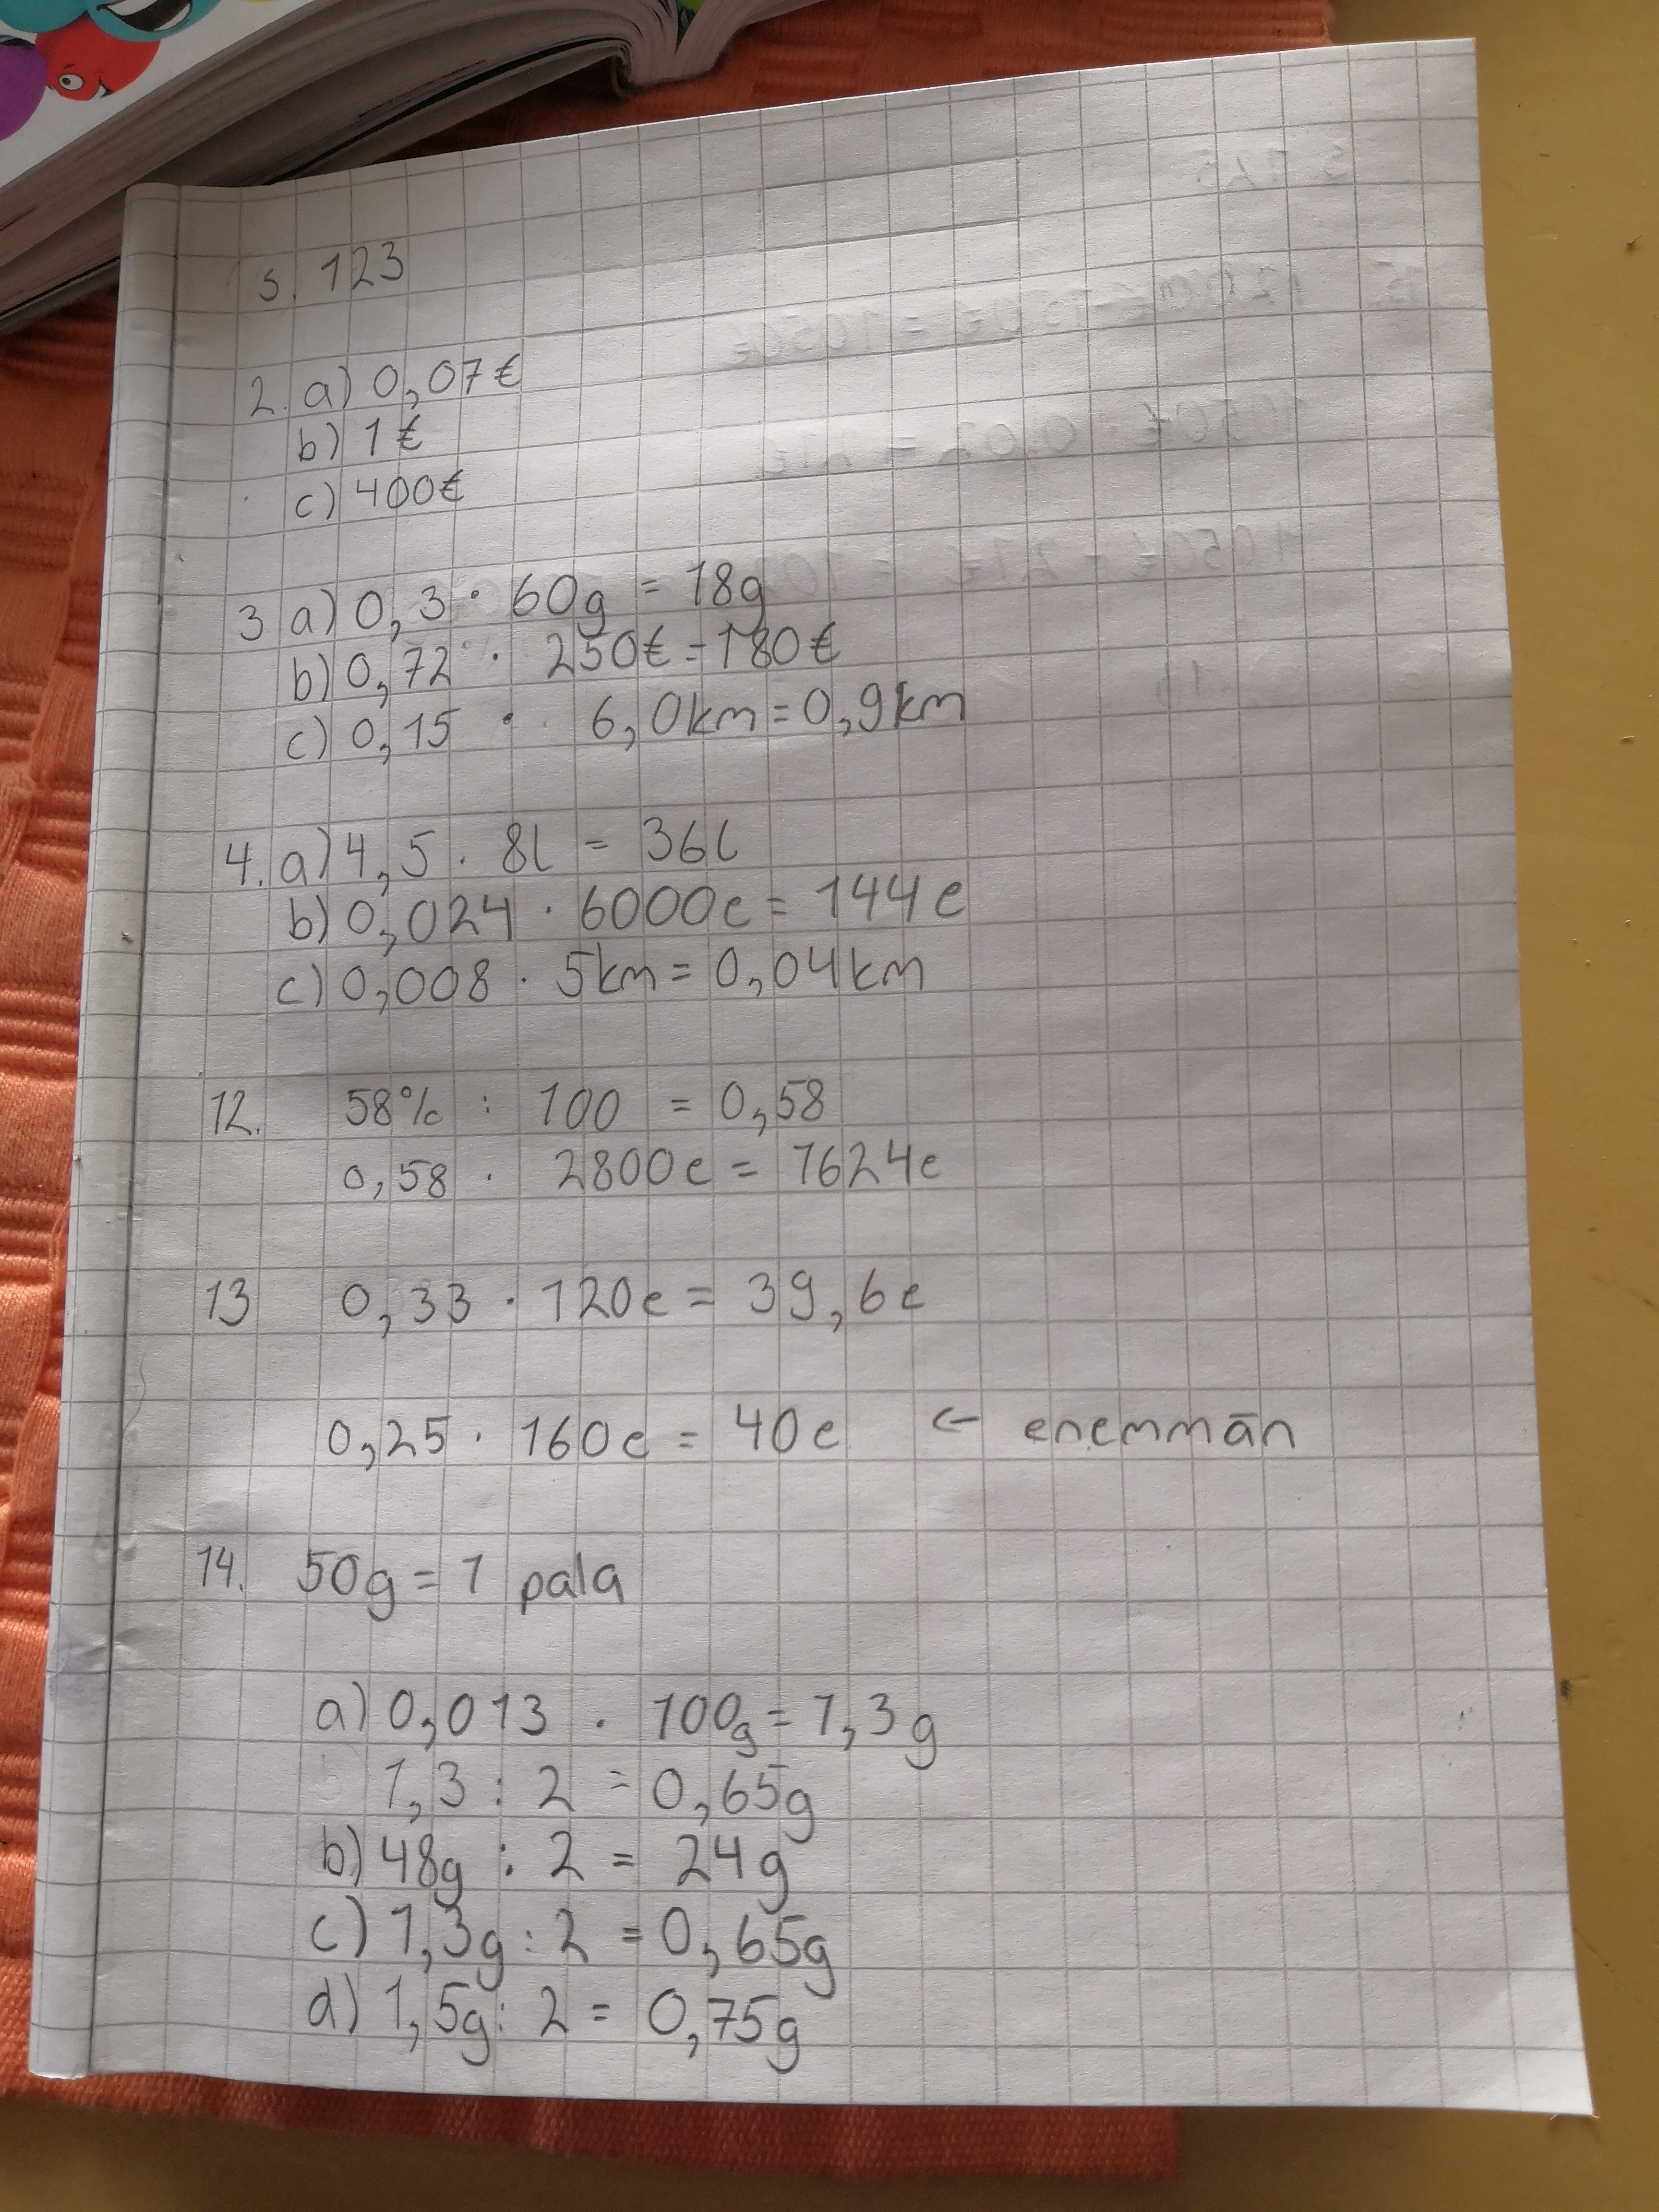 s. 123
2. a) 0,07€
b) 1€
c) 400€
3 a) 0,3 · 60g = 18g
b) 0,72 · 250€ = 180€
c) 0,15 · 6,0km = 0,9km
4. a) 4,5 · 8l = 36l
b) 0,024 · 6000e = 144e
c) 0,008 · 5km = 0,04km
12. 58% : 100 = 0,58
0,58 · 2800e = 1624e
13 0,33 · 120e = 39,6e
0,25 · 160e = 40e ← enemmän
14. 50g = 1 pala
a) 0,013 · 100g = 1,3g
1,3 : 2 = 0,65g
b) 48g : 2 = 24g
c) 1,3g : 2 = 0,65g
d) 1,5g : 2 = 0,75g